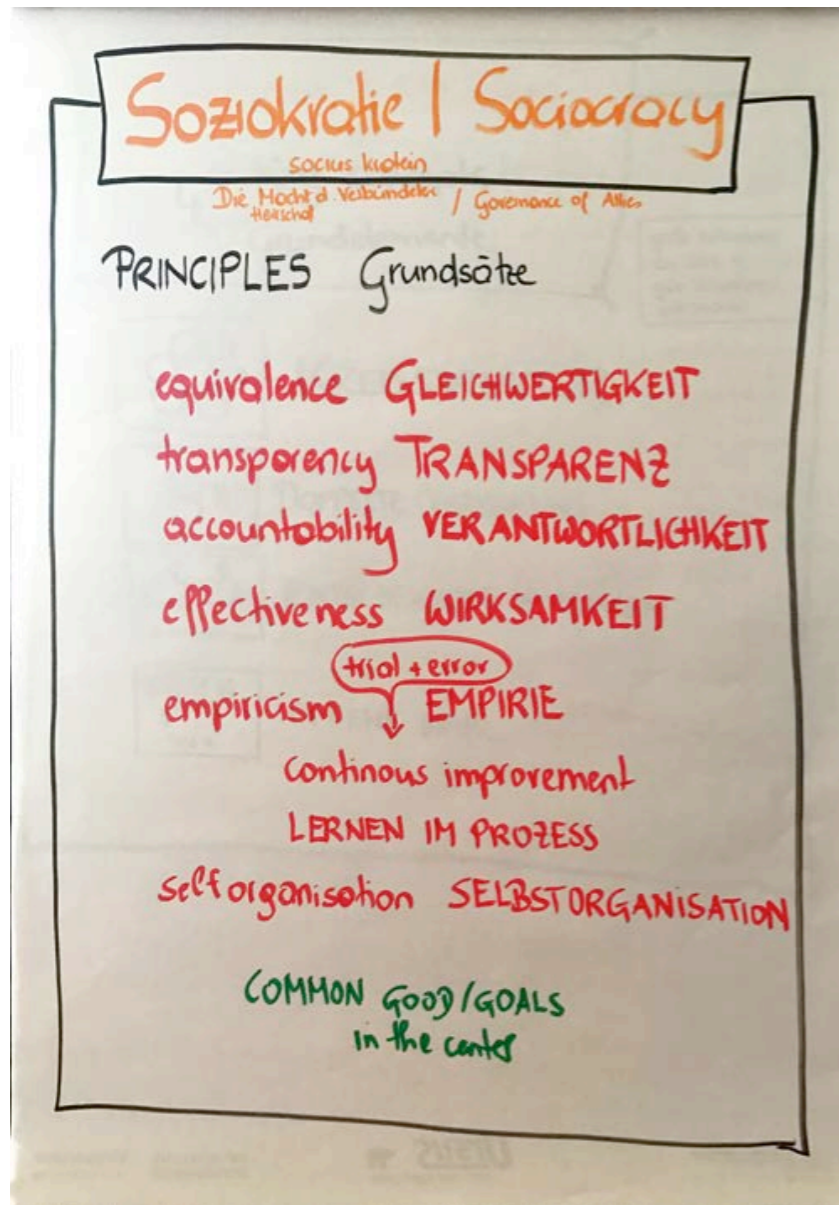 Soziokratie | Sociocracy
socius kratein
Die Macht d. Verbündeten / Governance of Allies
Herrschaft
PRINCIPLES Grundsätze
equivalence GLEICHWERTIGKEIT
transparency TRANSPARENZ
accountability VERANTWORTLICHKEIT
effectiveness WIRKSAMKEIT
trial + error
empiricism EMPIRIE
continous improvement
LERNEN IM PROZESS
self organisation SELBSTORGANISATION
COMMON GOOD/GOALS
in the center